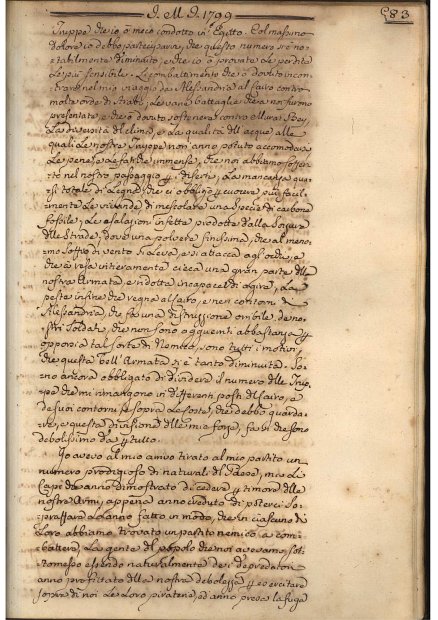 J. M. J. 1799
683
Truppe che io ò meco condotto in Egitto. Col massimo
dolore io debbo parteciparvi, che questo numero si è no-
tabilmente diminuito, e che io ò provato le perdite
le più sensibili. Li combattimenti che ò dovuto incon-
trare nel mio viaggio da Alessandria al Cairo contro
molte orde di Arabi; Le varie battaglie che a noi furono
presentate, e che ò dovuto sostenere contro Murat Bey,
La diversità del clima, e La qualità dell acque alle
quali Le nostre Truppe non anno potuto accomodarsi
Le pene, e Le fatiche immense, che noi abbiamo soffer-
to nel nostro passaggio p i diserti, La mancanza qua-
si totale di Legne, che ci obbligò p cuocere più facil-
mente Le vivande di mescolare una specie di carbone
fossile; Le esalazioni infette prodotte dalla
delle Strade, dove una polvere finissima, che al meno-
mo soffio di vento si Leva, e si attacca agl'occhi, e
che à resa interamente cieca una gran parte della
nostra Armata, e indotta incapace di agire, La
peste infine che regna al Cairo, e nei contorni di
Alessandria, che fa una distruzione orribile de no-
stri Soldati, che non sono agguerriti abbastanza p
opporsi a tal sorte di Nemico, sono tutti i motivi,
che questa bell'Armata si è tanto diminuita. So-
no ancora obbligato di dividere il numero delle Trup-
pe che mi rimangono in differenti posti del Cairo, e
de suoi contorni, e sopra Le Coste, che debbo guarda-
re, e questa divisione delle mie forze, fa sì che sono
debolissimo da p tutto.
Io avevo al mio arrivo tirato al mio partito un
numero prodigioso di naturali del Paese, ma Li
Capi che anno dimostrato di cedere p timore delle
nostre Armi, appena anno creduto di poterci so-
praffare Lo anno fatto in modo, che in ciascuno di
Loro abbiamo trovato un partito nemico a com-
battere. La gente del popolo che noi avevamo sot-
tomesso essendo naturalmente dei depredatori
anno profittato della nostra debolezza p esercitare
sopra di noi Le Loro piraterie, ed anno presa la fuga